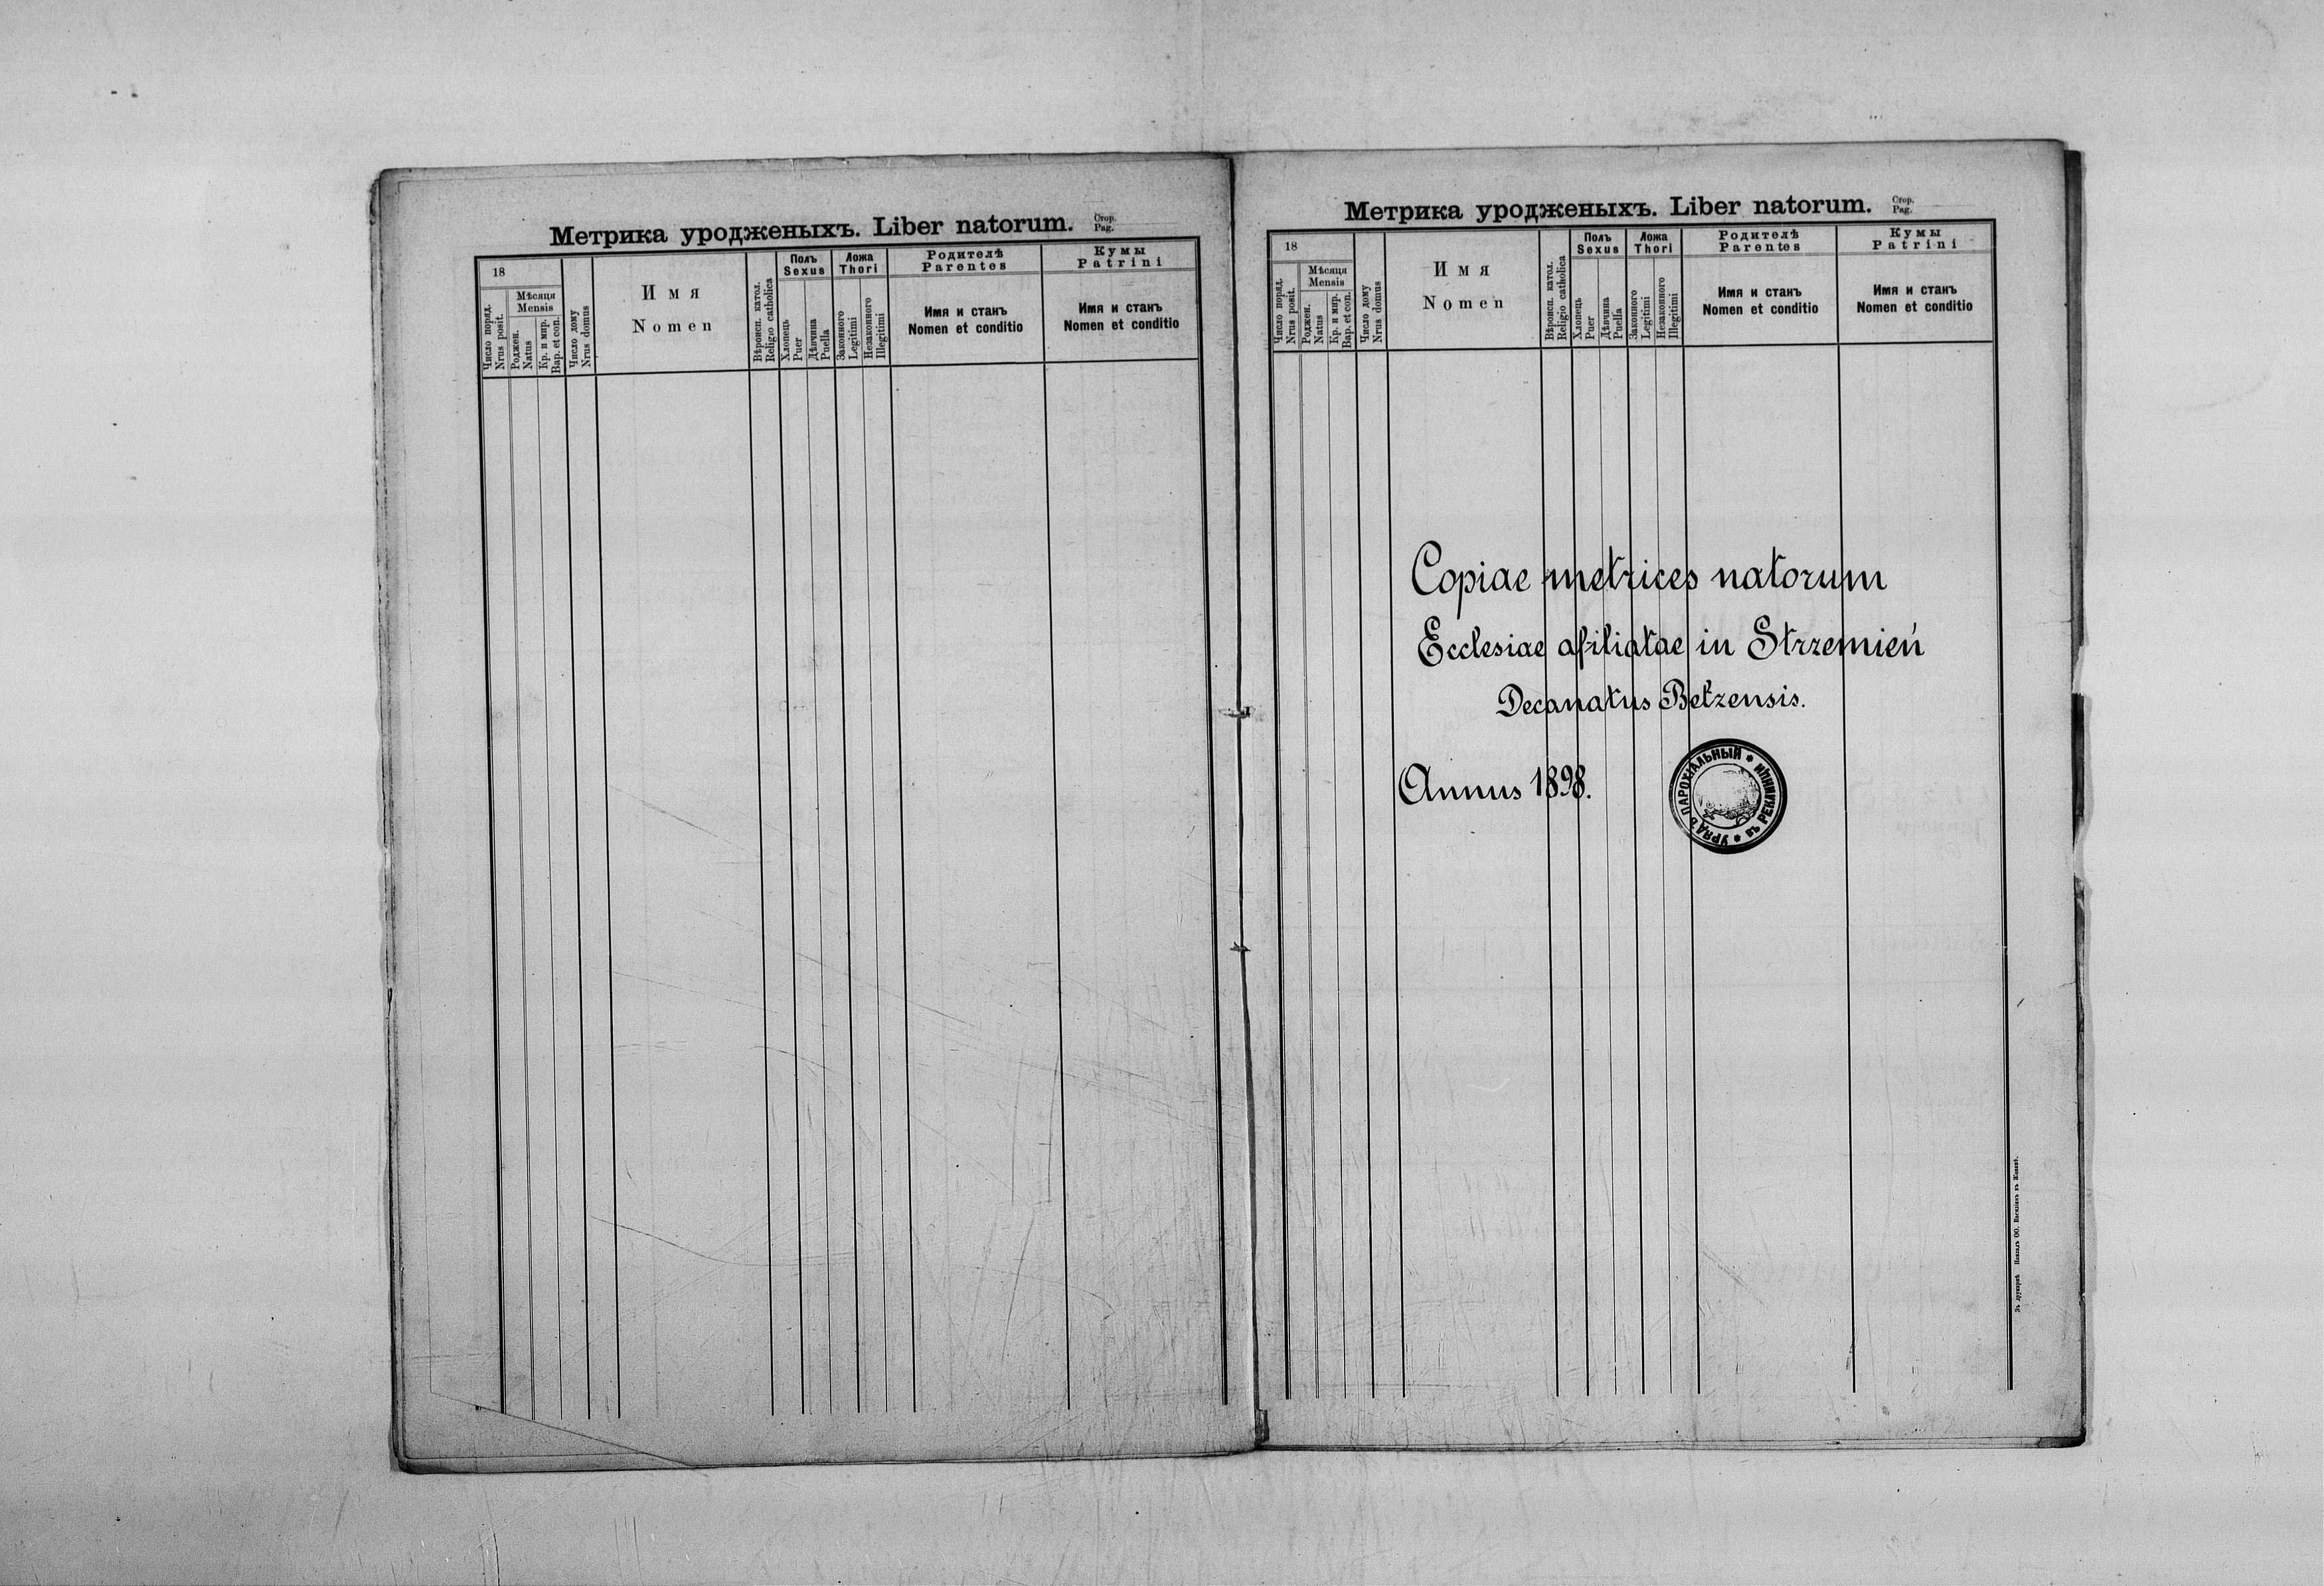 Метрика уродженыхъ. Liber natorum. Стор. Pag.
18
Число поряд. Nrus posit.
Мѣсяця Mensis
Роджен. Natus
Кр. и мир. Bap. et con.
Число дому Nrus domus
Имя
Nomen
Вѣроисп. катол. Religio catholica
Полъ Sexus
Хлопець Puer
Дѣвчина Puella
Ложа Thori
Законного Legitimi
Незаконного Illegitimi
Родителѣ
Parentes
Имя и станъ
Nomen et conditio
Кумы
Patrini
Имя и станъ
Nomen et conditio
Метрика уродженыхъ. Liber natorum. Стор. Pag.
18
Число поряд. Nrus posit.
Мѣсяця Mensis
Роджен. Natus
Кр. и мир. Bap. et con.
Число дому Nrus domus
Имя
Nomen
Вѣроисп. катол. Religio catholica
Полъ Sexus
Хлопець Puer
Дѣвчина Puella
Ложа Thori
Законного Legitimi
Незаконного Illegitimi
Родителѣ
Parentes
Имя и станъ
Nomen et conditio
Кумы
Patrini
Имя и станъ
Nomen et conditio
Copiae metrices natorum
Ecclesiae afiliatae in Strzemień
Decanatus Betzensis.
Annus 1898.
УРЯДЪ ПАРОХІАЛЬНЫЙ * въ РЕКЛИНЦИ *
Зъ друкарнѣ